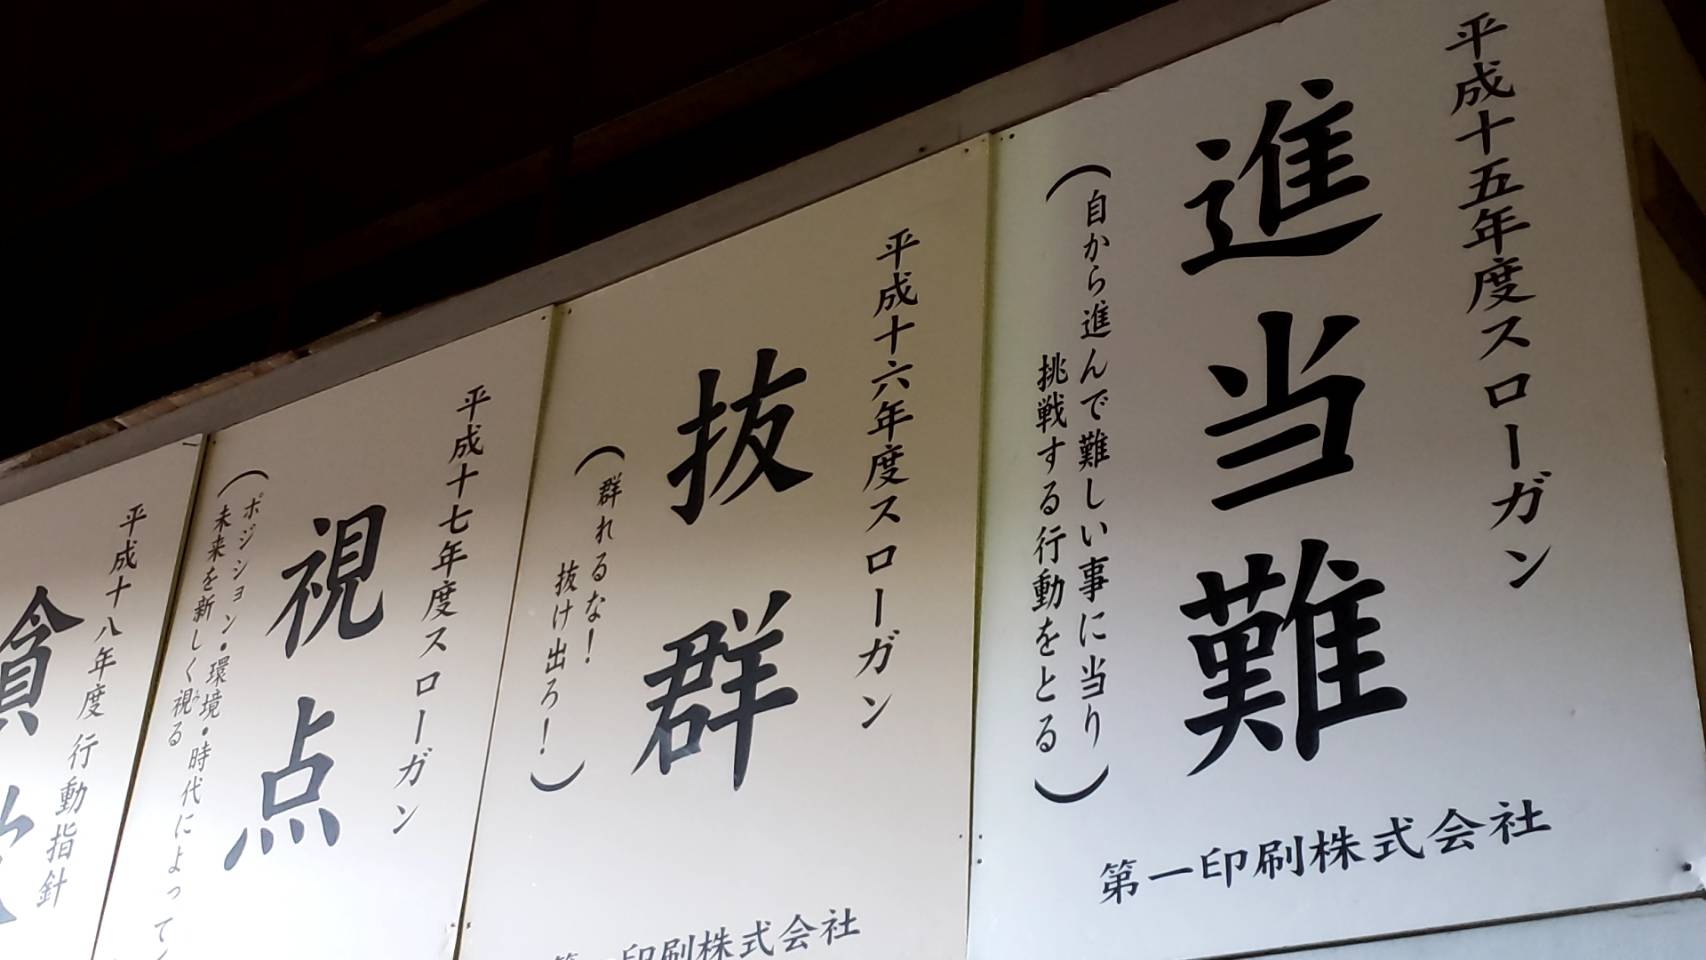 平成十五年度スローガン
進当難
（自から進んで難しい事に当り
挑戦する行動をとる）
第一印刷株式会社
平成十六年度スローガン
抜群
（群れるな！
抜け出ろ！）
第一印刷株式会社
平成十七年度スローガン
視点
（ポジション・環境・時代によって
未来を新しく視る
平成十八年度 行動指針
貪欲